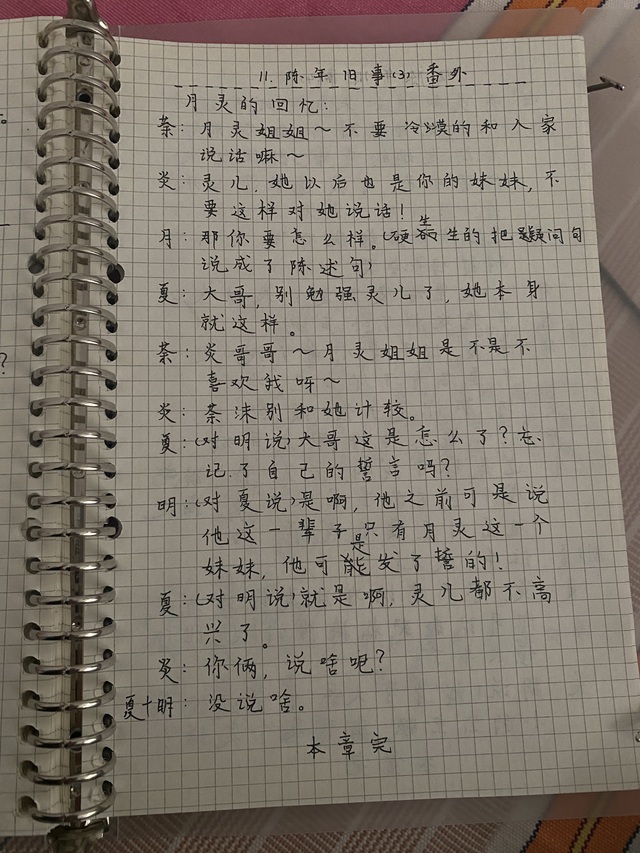 11. 陈年旧事(3) 番外
月灵的回忆:
荼: 月灵姐姐～不要冷漠的和人家
说话嘛～
炎: 灵儿,她以后也是你的妹妹,不
要这样对她说话!
月: 那你要怎么样。(硬生生的把疑问句
说成了陈述句)
夏: 大哥,别勉强灵儿了,她本身
就这样。
荼: 炎哥哥～月灵姐姐是不是不
喜欢我呀～
炎: 荼沫别和她计较。
夏: (对明说)大哥这是怎么了?忘
记了自己的誓言吗?
明: (对夏说)是啊,他之前可是说
他这一辈子只有月灵这一个
妹妹,他可是发了誓的!
夏: (对明说)就是啊,灵儿都不高
兴了。
炎: 你俩,说啥呢?
夏+明: 没说啥。
本章完
?